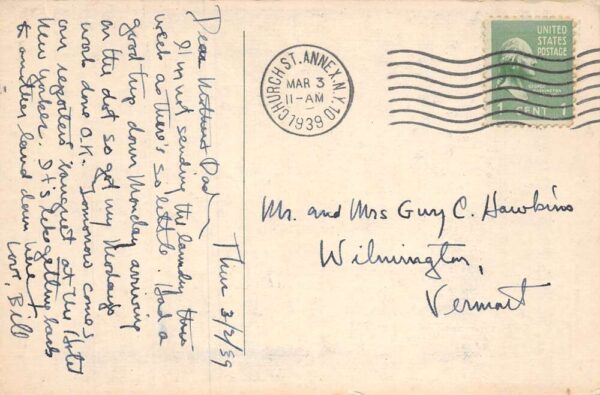 Thurs 3/2/39
Dear Mother & Dad,
I'm not sending the laundry this
week as there's so little. Had a
good trip down Monday arriving
on the dot so got my Mondays
work done O.K. Tomorrow comes
our reporters banquet at the Hotel
New Yorker. It's like getting back
to another land down here
Love, Bill
CHURCH ST. ANNEX, N.Y. 10
MAR 3
11-AM
1939
UNITED
STATES
POSTAGE
GEORGE
WASHINGTON
1 CENT 1
Mr. and Mrs Guy C. Hawkins
Wilmington,
Vermont